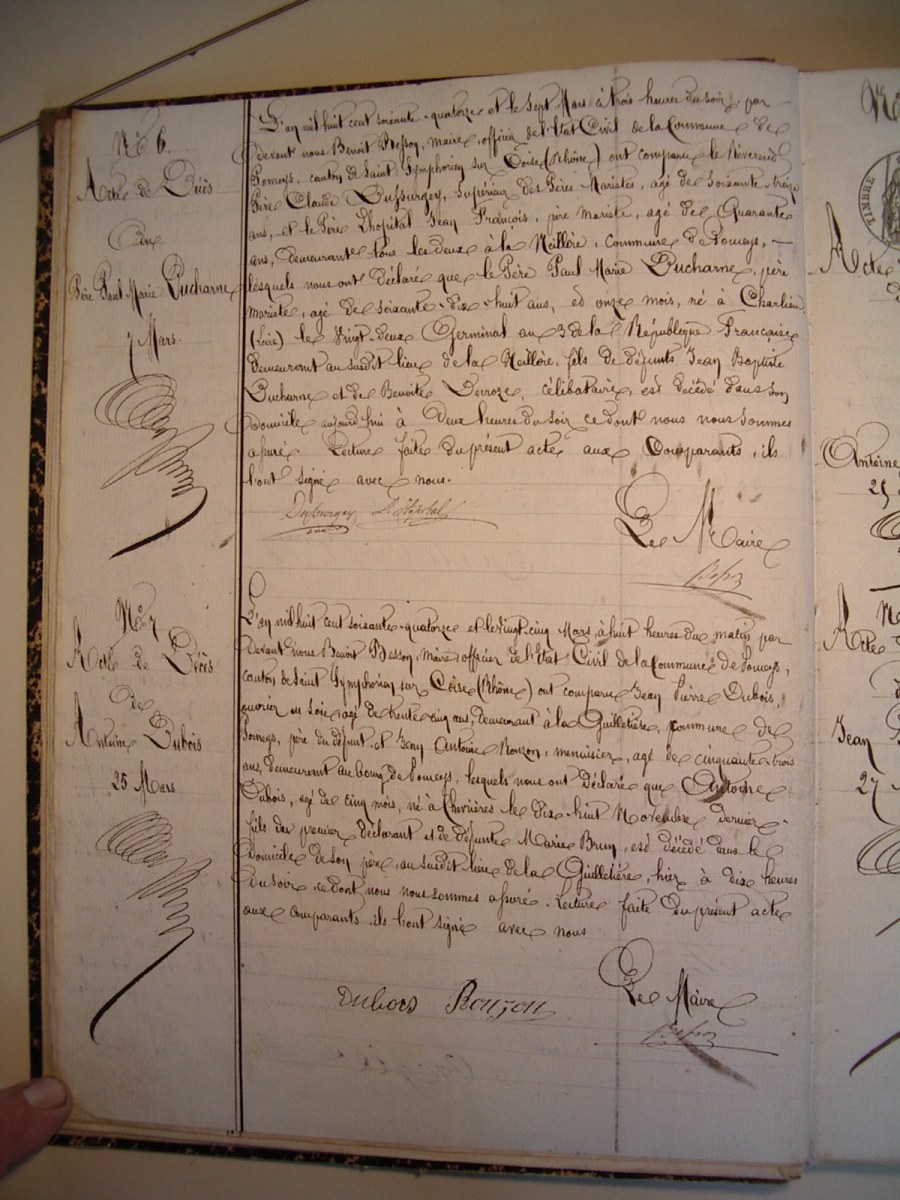 No 6.
Acte de Décès
de
Père Paul Marie Ducharne
7 Mars.
L'an mil huit cent soixante-quatorze et le sept Mars à trois heures du soir, par
devant nous Benoit Besson, maire, officier de l'Etat Civil de la Commune de
Pomeys, canton de Saint Symphorien sur Coise (Rhône) ont comparu le Révérend
Père Claude Dussurgey, Supérieur des Pères Maristes, agé de soixante-treize
ans, et le Père Lhopital Jean François, père mariste, agé de Quarante
ans, demeurant tous les deux à la Neillère, commune de Pomeys, —
lesquels nous ont déclaré que le Père Paul Marie Ducharne, père
mariste, agé de soixante-dix-huit ans, et onze mois, né à Charlieu
(Loire) le Vingt-deux Germinal an 3 de la République Française
demeurant au susdit lieu de la Neillère, fils de défunts Jean Baptiste
Ducharne et de Benoite Deroze, célibataire, est décédé dans son
Domicile aujourd'hui à deux heures du soir, ce dont nous nous sommes
assuré. Lecture faite du présent acte aux Comparants, ils
l'ont signé avec nous.
Dussurgey L'hopital
Le Maire
Besson
No 7
Acte de Décès
de
Antoine Dubois
25 Mars
L'an mil huit cent soixante-quatorze et le vingt-cinq Mars, à huit heures du matin, par
devant nous Benoit Besson, Maire, officier de l'Etat Civil de la Commune de Pomeys,
canton de Saint Symphorien sur Coise (Rhône) ont comparu Jean Pierre Dubois,
ouvrier en soie, agé de trente cinq ans, demeurant à la Guilletière, commune de
Pomeys, père du défunt, et Jean Antoine Ronzon, menuisier, agé de cinquante-trois
ans, demeurant au bourg de Pomeys, lesquels nous ont déclaré que Antoine
Dubois, agé de cinq mois, né à Chevrières le dix-huit Novembre dernier
fils du premier déclarant et de défunte Marie Brun, est décédé dans le
domicile de son père, au susdit lieu de la Guilletière, hier à dix heures
du soir, ce dont nous nous sommes assuré. Lecture faite du présent acte
aux comparants, ils l'ont signé avec nous
Dubois Ronzon
Le Maire
Besson
TIMBRE
Acte
Antoine
25
Acte
Jean
27